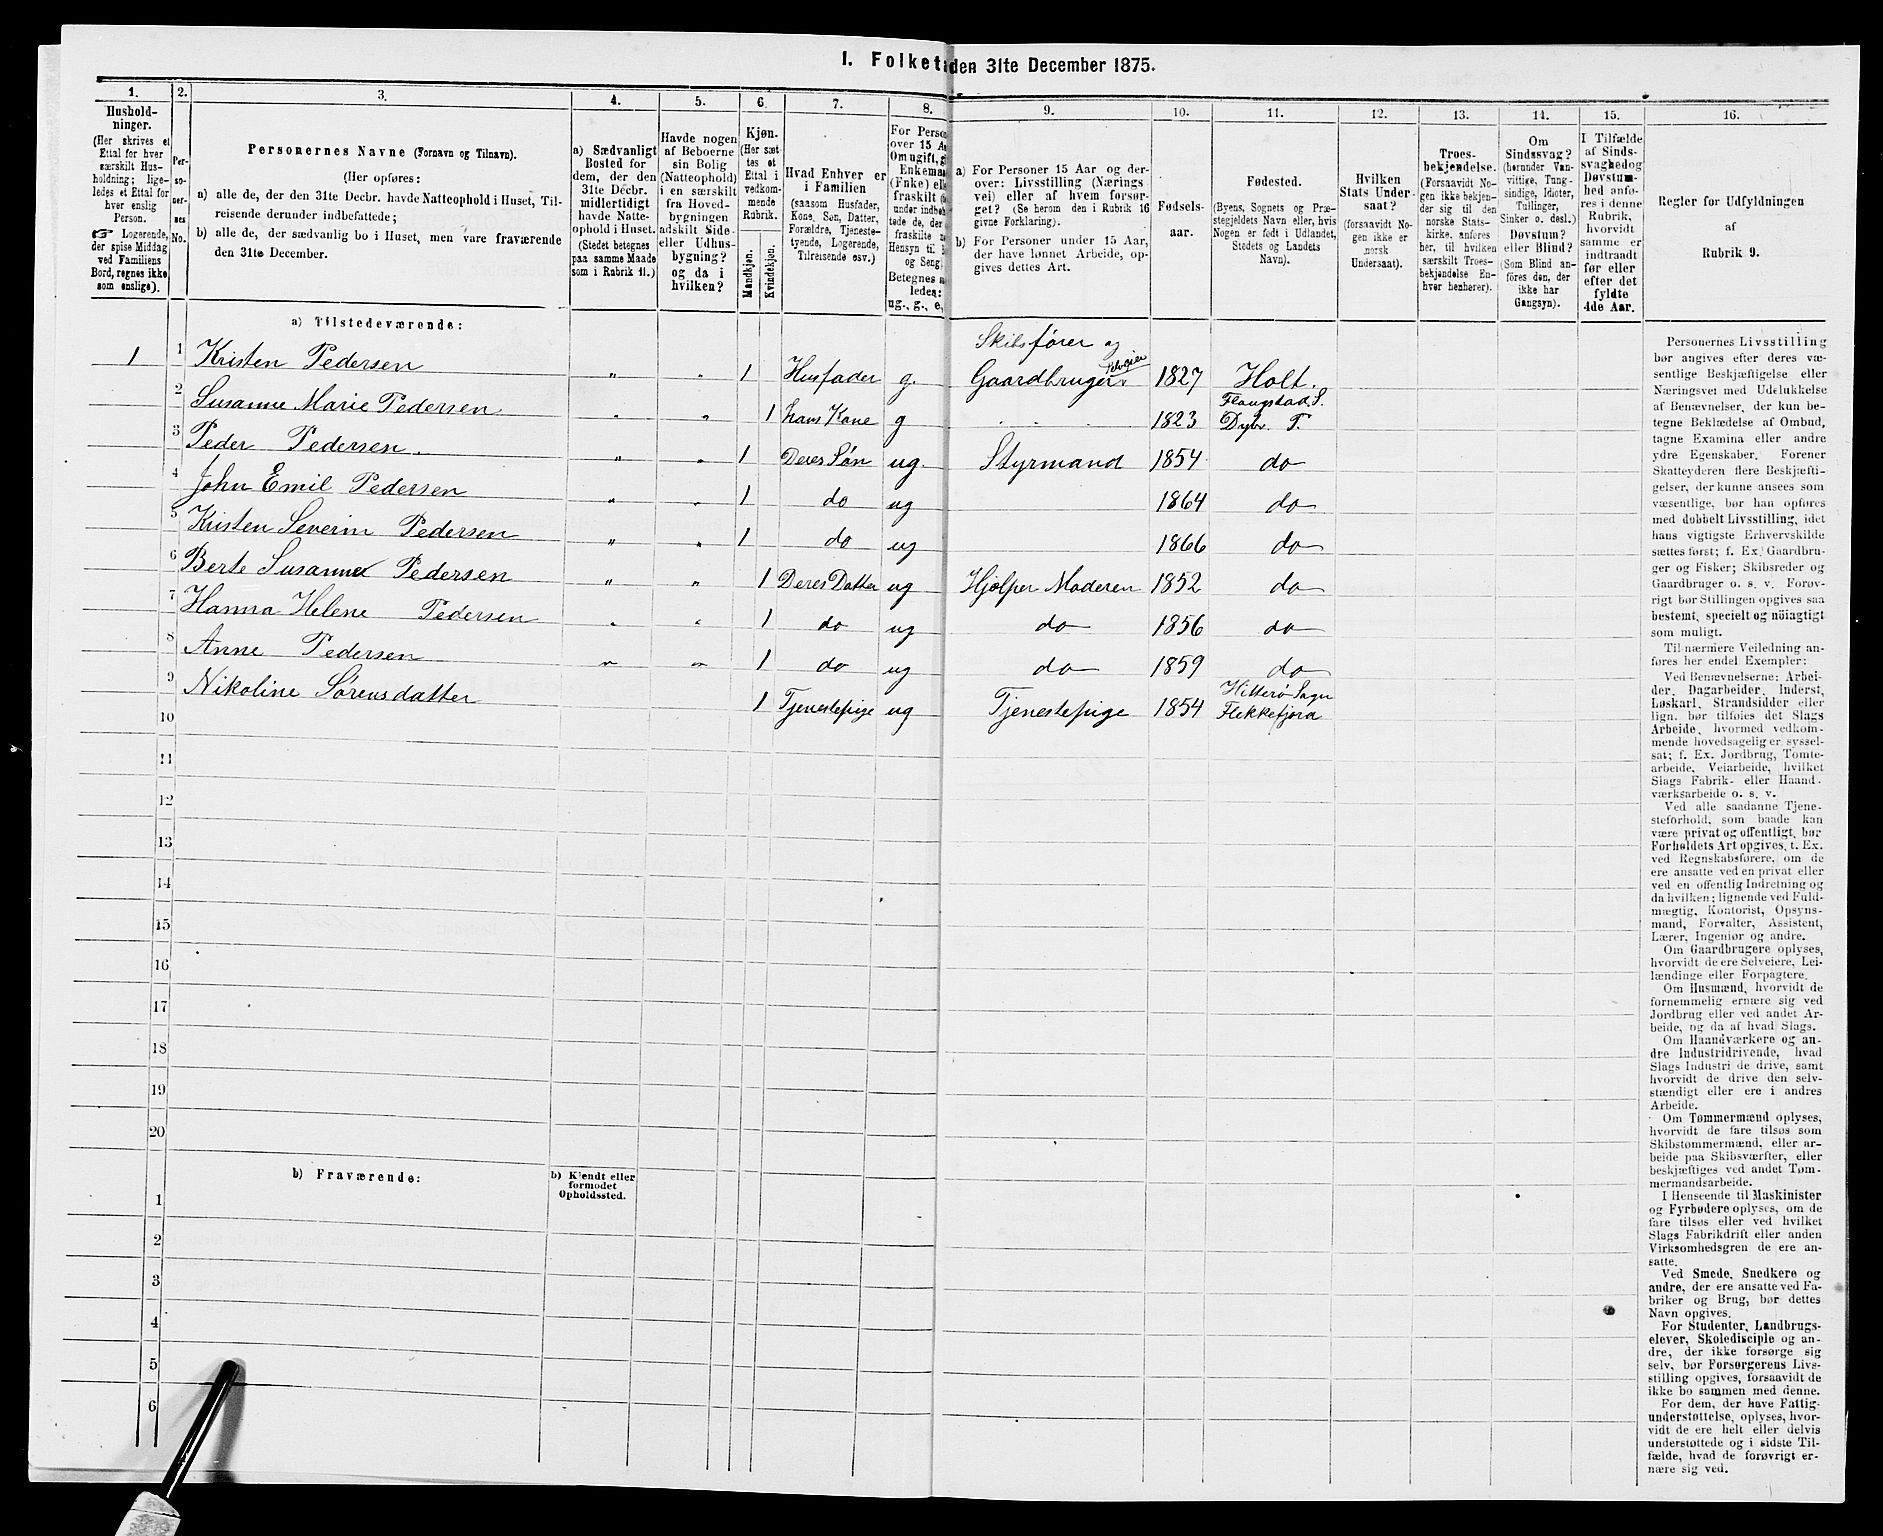 I. Folketæ
den 31te December 1875.
1.
2.
3.
4.
5.
6.
7.
8.
9.
10.
11.
12.
13.
14.
15.
16.
Hushold-
ninger.
(Her skrives et
Ettal for hver
særskilt Hus-
holdning; lige-
ledes et Ettal for
hver enslig
Person.
☞ Logerende,
der spise Middag
ved Familiens
Bord, regnes ikke
som enslige).
Per-
so-
ner-
nes
No.
Personernes Navne (Fornavn og Tilnavn).
(Her opføres:
a) alle de, der den 31te Decbr. havde Natteophold i Huset, Til-
reisende derunder indbefattede;
b) alle de, der sædvanlig bo i Huset, men vare fraværende
den 31te December.
a) Sædvanligt
Bosted for
dem, der den
31te Decbr.
midlertidigt
havde Natte-
ophold i Huset.
(Stedet betegnes
paa samme Maade
som i Rubrik 11.)
Havde nogen
af Beboerne
sin Bolig
(Natteophold)
i en særskilt
fra Hoved-
bygningen
adskilt Side-
eller Udhus-
bygning?
og da i
hvilken?
Kjøn.
(Her sæt-
tes et
Ettal i
vedkom-
mende
Rubrik.
Mandkjøn.
Kvindekjøn.
Hvad Enhver er
i Familien
(saasom Husfader,
Kone, Søn, Datter,
Forældre, Tjeneste-
tyende, Logerende,
Tilreisende osv.)
For Perso
over 15 Aa
Om ugift, g
Enkema
(Enke) ell
fraskilt (
under indbe
tede de, der
fraskilte
Hensyn til
og Seng)
Betegnes
ledes:
ug., g., e,
a) For Personer 15 Aar og der-
over: Livsstilling (Nærings
vei) eller af hvem forsør-
get? (Se herom den i Rubrik 16
givne Forklaring).
b) For Personer under 15 Aar,
der have lønnet Arbeide, op-
gives dettes Art.
Fødsels-
aar.
Fødested.
(Byens, Sognets og Præ-
stegjeldets Navn eller, hvis
Nogen er født i Udlandet,
Stedets og Landets
Navn).
Hvilken
Stats Under-
saat?
(forsaavidt No-
gen ikke er
norsk
Undersaat).
Troes-
bekjendelse.
(Forsaavidt No-
gen ikke bekjen-
der sig til den
norske Stats-
kirke, anføres
her, til hvilken
særskilt Troes-
bekjendelse En-
hver henhører).
Om
Sindssvag?
(herunder Van-
vittige, Tung-
sindige, Idioter,
Tullinger,
Sinker o. desl.)
Døvstum?
eller Blind?
(Som Blind an-
føres den, der
ikke har
Gangsyn).
I Tilfælde
af Sinds-
svaghedog
Døvstum-
hed anfø-
res i denne
Rubrik,
hvorvidt
samme er
indtraadt
før eller
efter det
fyldte
4de Aar.
Regler for Udfyldningen
af
Rubrik 9.
a) Tilstedeværende:
Skibsfører og
1 1 Kristen Pedersen " " 1 Husfader g. Gaardbruger Selveier 1827 Holt.
2 Susanne Marie Pedersen " " 1 hans Kone g 1823 S. Dybv. P.
3 Peder Pedersen. " " 1 Deres Søn ug. Styrmand 1854 do
4 John Emil Pedersen " " 1 do ug 1864 do
5 Kristen Severin Pedersen " " 1 do ug 1866 do
6 Berte Susanne Pedersen " " 1 Deres Datter ug Hjælper Moderen 1852 do
7 Hanna Helene Pedersen " " 1 do ug do 1856 do
8 Anne Pedersen " " 1 do ug do 1859 do
9 Nikoline Sørensdatter 1 Tjenestepige ug Tjenestepige 1854 Hitterø Sogn Flekkefjord
10
11
12
13
14
15
16
17
18
19
20
b) Fraværende:
b) Kjendt eller
formodet
Opholdssted.
1
2
3
4
5
6
Personernes Livsstilling
bør angives efter deres væ-
sentlige Beskjæftigelse eller
Næringsvei med Udelukkelse
af Benævnelser, der kun be-
tegne Beklædelse af Ombud,
tagne Examina eller andre
ydre Egenskaber. Forener
Skatteyderen flere Beskjæfti-
gelser, der kunne ansees som
væsentlige, bør han opføres
med dobbelt Livsstilling, idet
hans vigtigste Erhvervskilde
sættes først; f. Ex. Gaardbru-
ger og Fisker; Skibsreder og
Gaardbruger o. s. v. Forøv-
rigt bør Stillingen opgives saa
bestemt, specielt og nöiagtigt
som muligt.
Til nærmere Veiledning an-
føres her endel Exempler:
Ved Benævnelserne: Arbei-
der, Dagarbeider, Inderst,
Løskarl, Strandsidder eller
lign. bør tilføies det Slags
Arbeide, hvormed vedkom-
mende hovedsagelig er syssel-
sat; f. Ex. Jordbrug, Tomte-
arbeide, Veiarbeide, hvilket
Slags Fabrik- eller Haand-
værksarbeide o. s. v.
Ved alle saadanne Tjene-
steforhold, som baade kan
være privat og offentligt, bør
Forholdets Art opgives, t. Ex.
ved Regnskabsførere, om de
ere ansatte ved en privat eller
ved en offentlig Indretning og
da hvilken; lignende ved Fuld-
mægtig, Kontorist, Opsyns-
mand, Forvalter, Assistent,
Lærer, Ingeniør og andre.
Om Gaardbrugere oplyses,
hvorvidt de ere Selveiere, Lei-
lændinge eller Forpagtere.
Om Husmænd, hvorvidt de
fornemmelig ernære sig ved
Jordbrug eller ved andet Ar-
beide, og da af hvad Slags.
Om Haandværkere og an-
dre Industridrivende, hvad
Slags Industri de drive, samt
hvorvidt de drive den selv-
stændigt eller ere i andres
Arbeide.
Om Tømmermænd oplyses,
hvorvidt de fare tilsøs som
Skibstømmermænd, eller ar-
beide paa Skibsværfter, eller
beskjæftiges ved andet Tøm-
mermandsarbeide.
I Henseende til Maskinister
og Fyrbødere oplyses, om de
fare tilsøs eller ved hvilket
Slags Fabrikdrift eller anden
Virksomhedsgren de ere an-
satte.
Ved Smede, Snedkere og
andre, der ere ansatte ved Fa-
briker og Brug, bør dettes
Navn opgives.
For Studenter, Landbrugs-
elever, Skoledisciple og an-
dre, der ikke forsørge sig
selv, bør Forsørgerens Livs-
stilling opgives, forsaavidt de
ikke bo sammen med denne.
For dem, der have Fattig-
understøttelse, oplyses, hvor-
vidt de ere helt eller delvis
understøttede og i sidste Til-
fælde, hvad de forøvrigt er-
nære sig ved.